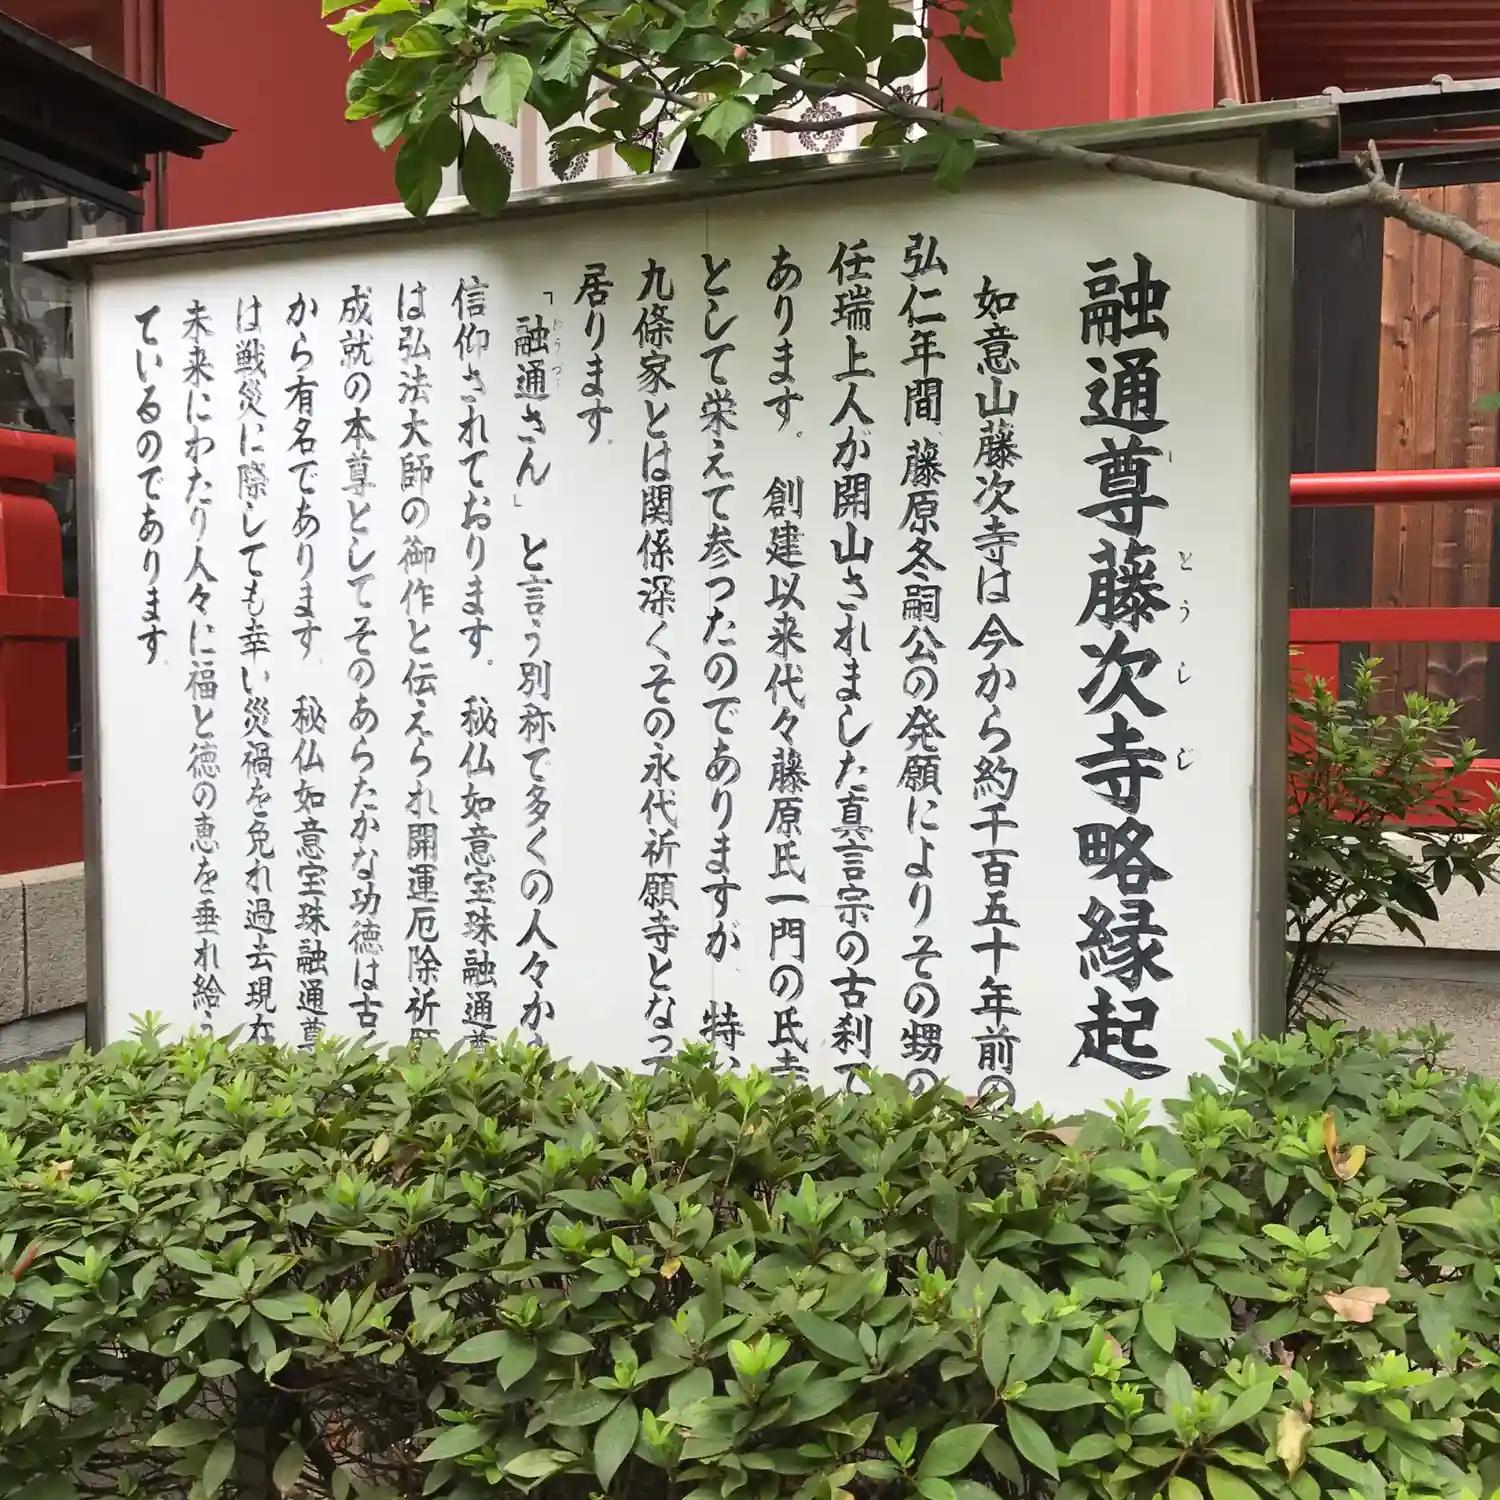 融通尊藤次寺略縁起
とうしじ
如意山藤次寺は今から約千百五十年前の
弘仁年間、藤原冬嗣公の発願によりその甥の
任瑞上人が開山されました真言宗の古刹で
あります。創建以来代々藤原氏一門の氏寺
として栄えて参つたのでありますが、特に
九條家とは関係深くその永代祈願寺となって
居ります。
「融通さん」と言う別称で多くの人々から
信仰されております。秘仏如意宝珠融通尊
は弘法大師の御作と伝えられ開運厄除祈願
成就の本尊としてそのあらたかな功徳は古く
から有名であります。秘仏如意宝珠融通尊
は戦災に際しても幸い災禍を免れ過去現在
未来にわたり人々に福と徳の恵を垂れ給う
ているのであります。